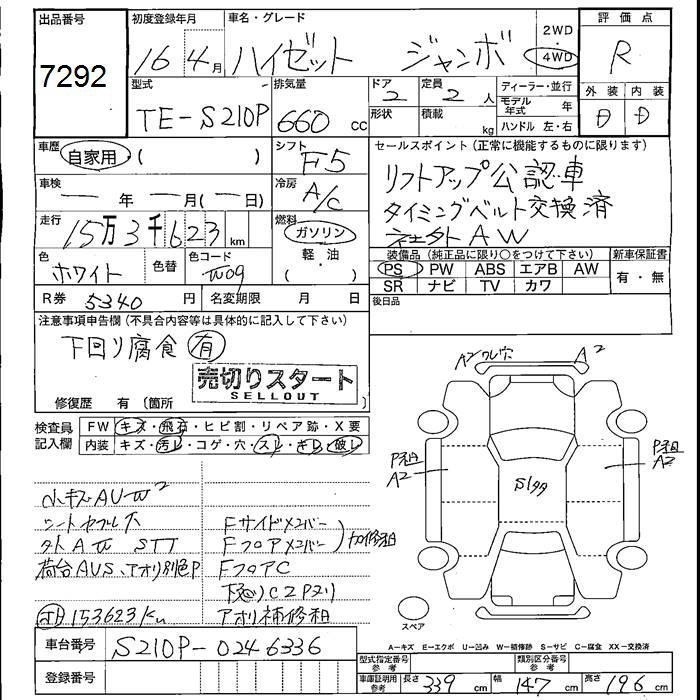 出品番号 初度登録年月 車名・グレード 2WD 評価点
7292 16 4月 ハイゼット ジャンボ 4WD R
型式 排気量 ドア 2 定員 2人 ディーラー・並行 外装 内装
TE-S210P 660 cc 形状 積載 kg モデル年式 年 D D
ハンドル 左・右
車歴 自家用 ( ) シフト F5 セールスポイント (正常に機能するものに限ります)
リフトアップ公認車
車検 ー年 ー月(ー日) 冷房 A/C タイミングベルト交換済
社外AW
走行 15万3千623km 燃料 ガソリン 軽・油 ( )
装備品 (純正品に限り○をつけて下さい) 新車保証書
色 ホワイト 色替 色コード W09 PS PW ABS エアB AW 有・無
SR ナビ TV カワ
R券 5340 円 名変期限 月 日 後日品
注意事項申告欄 (不具合内容等は具体的に記入して下さい)
下回リ腐食 有
売切りスタート
SELLOUT
修復歴 有 (箇所
検査員記入欄 FW キズ・飛石・ヒビ割・リペア跡・X要
内装 キズ・汚レ・コゲ・穴・スレ・キレ・破レ
小キズAU-W2
シートヤブレ大
外AW STT
荷台AUS、アオリ別色P
153623Km
Fサイドメンバー
Fフロアメンバー 加修粗
FフロアC
下廻りC2Pヌリ
アオリ補修粗
A2 ワレ穴 A2
P粗 A2 P粗 A2
S199
スペア
A－キズ E－エクボ U－凹み W－補修跡 S－サビ C－腐食 XX－交換済
車台番号 S210P-0246336
登録番号
型式指定番号参考 類別区分番号参考
車庫証明用参考 長さ 339 cm 幅 147 cm 高さ 196 cm